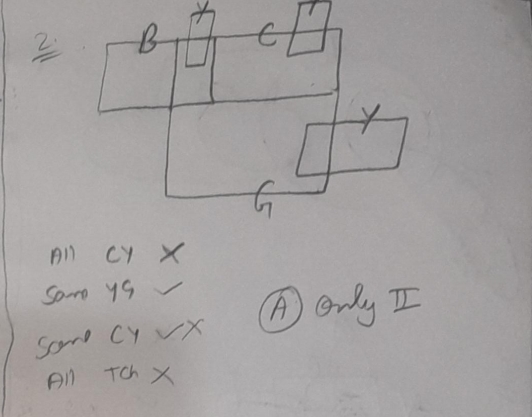 2.
Y Y
B C
Y
G
All CY X
Some YG ✓
Some CY ✓X
All TCh X
(A) Only II